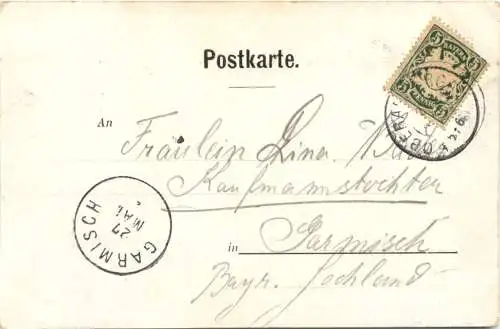 Postkarte.
BAYERN
5 5
PFENNIG
An
Fräulein Lina
Kaufmannstochter
in Garmisch
Bayr. Hochland
GARMISCH
27
MAI
OBERA